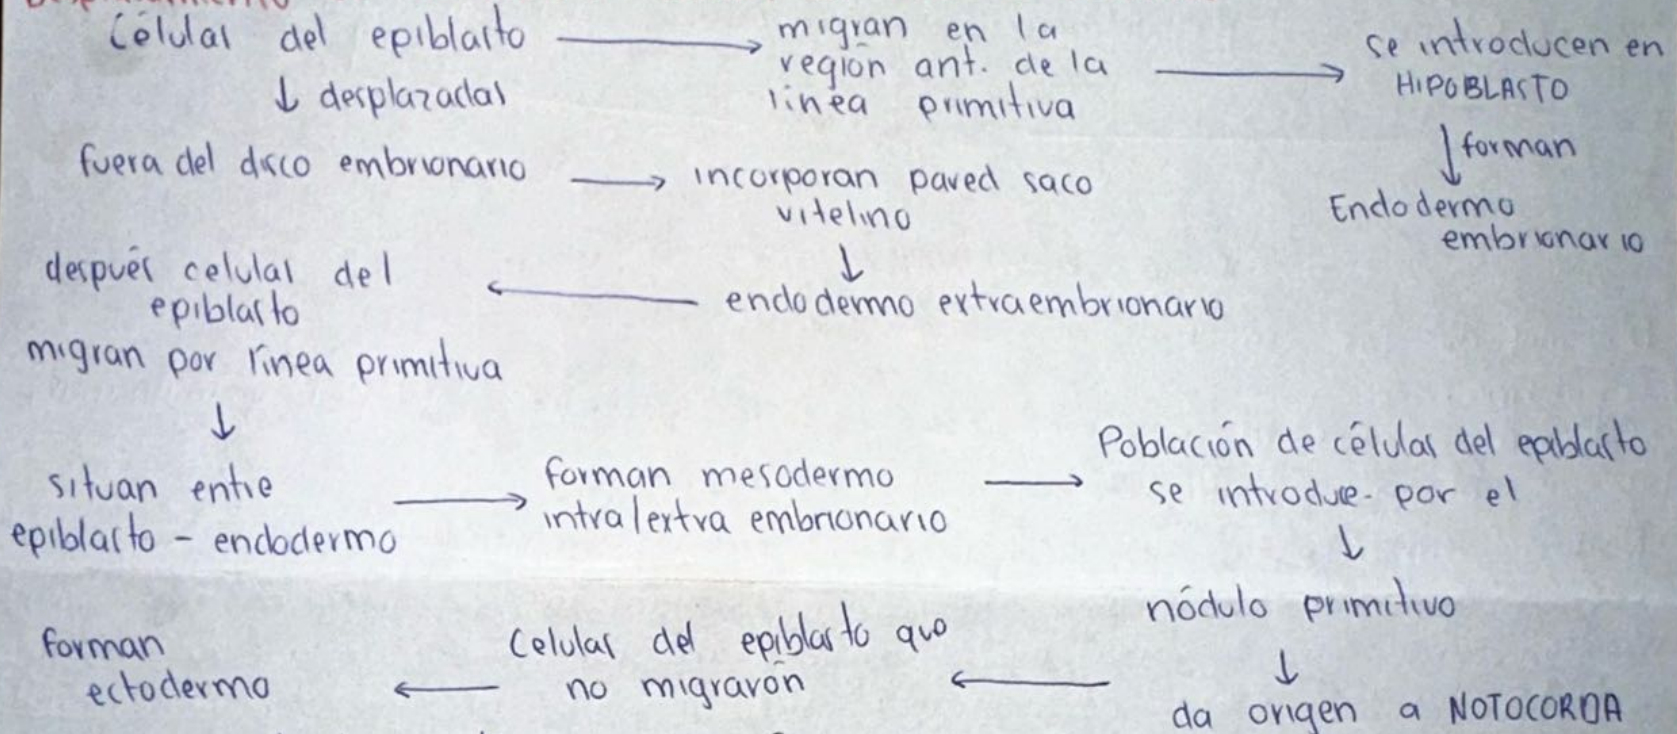 Células del epiblasto → migran en la región ant. de la línea primitiva → se introducen en HIPOBLASTO
↓ desplazadas
↓ forman
fuera del disco embrionario → incorporan pared saco vitelino
Endodermo embrionario
↓
después celulas del epiblasto ← endodermo extraembrionario
migran por línea primitiva
↓
situan entre epiblasto - endodermo → forman mesodermo intra/extra embrionario → Población de células del epiblasto se introduce por el
↓
nódulo primitivo
↓
da origen a NOTOCORDA
forman ectodermo ← Celulas del epiblasto que no migrarón ←